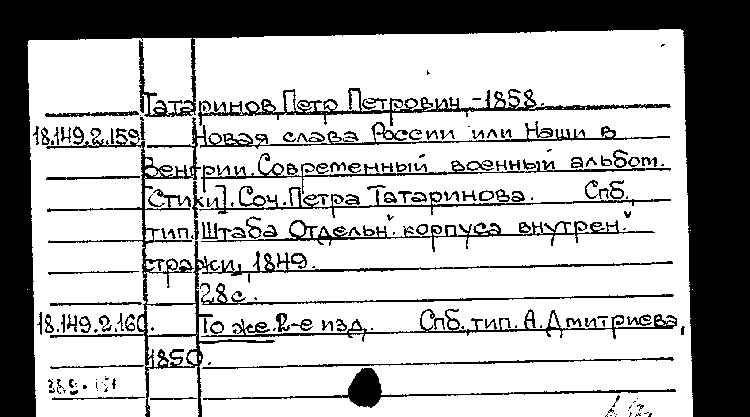 Татаринов, Петр Петрович, -1858.
18.149.2.159 Новая слава России или Наши в
Венгрии. Современный военный альбом.
[Стихи]. Соч. Петра Татаринова. Спб.,
тип. Штаба Отдельн. корпуса внутрен.
стражи, 1849.
28с.
18.149.2.160. То же. 2-е изд. Спб., тип. А. Дмитриева,
1850.